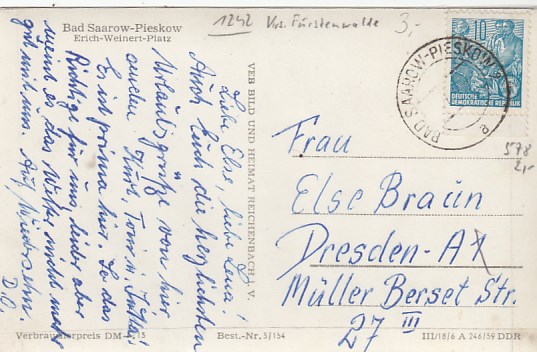 Bad Saarow-Pieskow
Erich-Weinert-Platz
1242 Krs. Fürstenwalde
3,-
10
DEUTSCHE
DEMOKRATISCHE REPUBLIK
BAD SAAROW-PIESKOW
a
578
2,-
Liebe Else, liebe Lena!
Auch Euch die herzlichsten
Urlaubsgrüße von hier
senden Kurt, Toni u. Jutta.
Es ist prima hier. So das
Richtige für uns, leider aber
meint es das Wetter nicht sehr
gut mit uns. Auf Wiedersehn.
D.O.
VEB BILD UND HEIMAT REICHENBACH i. V.
Frau
Else Braun
Dresden-A 1
Müller Berset Str.
27 III
Verbraucherpreis DM -,15
Best.-Nr. 3/154
III/18/6 A 246/59 DDR